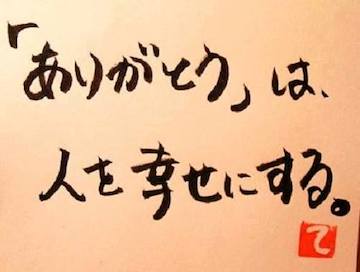 「ありがとう」は、
人を幸せにする。
て